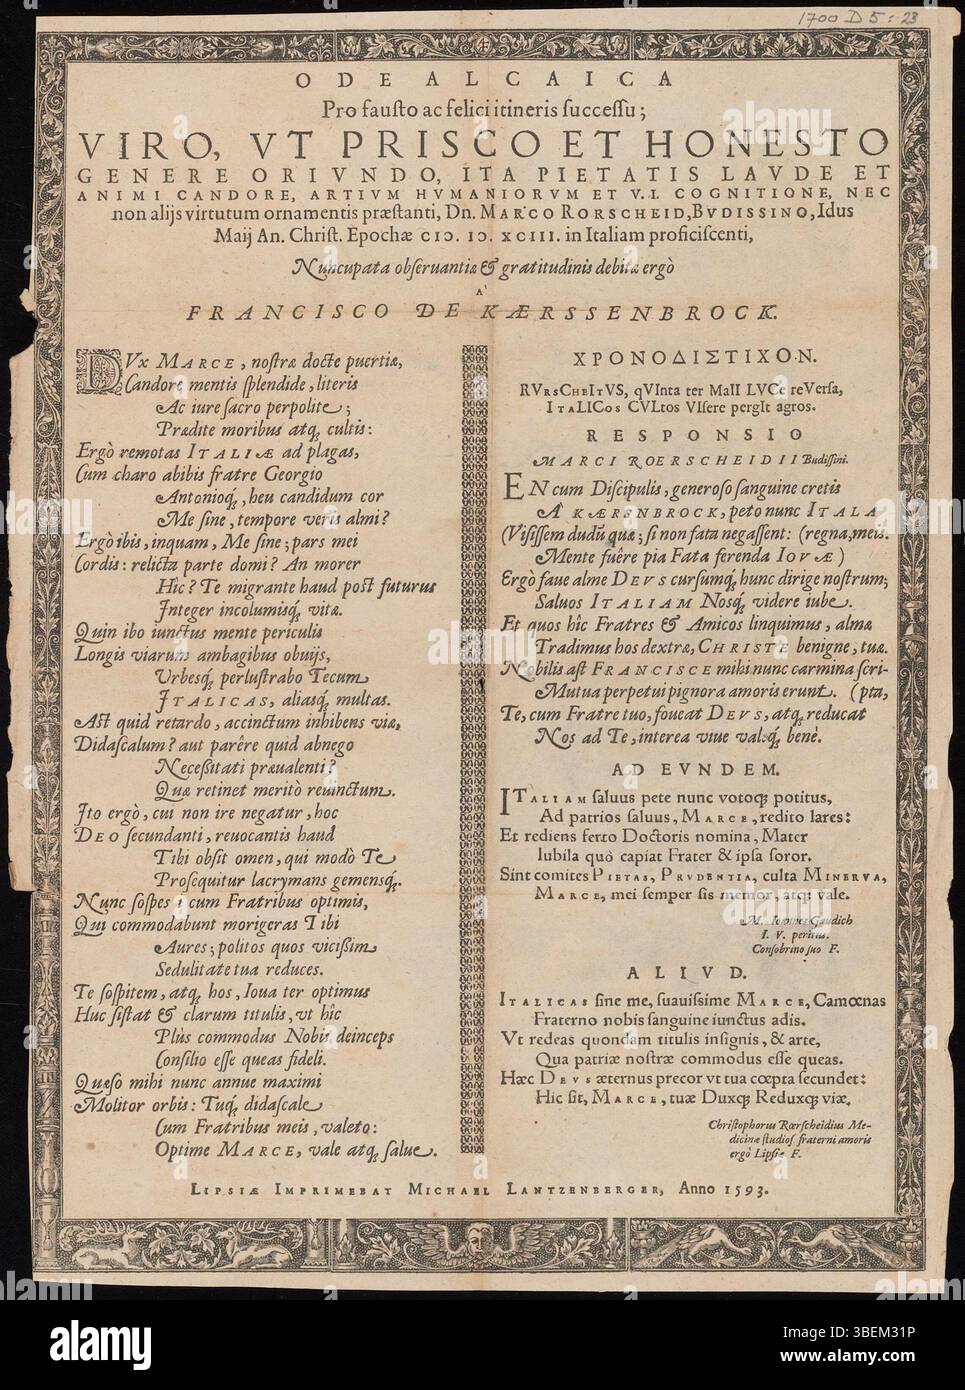 1700 D 5 : 23
ODE ALCAICA
Pro fausto ac felici itineris successu;
VIRO, VT PRISCO ET HONESTO
GENERE ORIVNDO, ITA PIETATIS LAVDE ET
ANIMI CANDORE, ARTIVM HVMANIORVM ET V.I. COGNITIONE, NEC
non alijs virtutum ornamentis præstanti, Dn. MARCO RORSCHEID, BVDISSINO, Idus
Maij An. Christ. Epochæ CIↃ. IↃ. XCIII. in Italiam proficiscenti,
Nuncupata observantiæ & gratitudinis debitæ ergò
A'
FRANCISCO DE KÆRSSENBROCK.
DVx MARCE, nostræ docte puertiæ,
Candore mentis splendide, literis
Ac iure sacro perpolite;
Prædite moribus atq; cultis:
Ergò remotas ITALIÆ ad plagas,
Cum charo abibis fratre Georgio
Antonioq;, heu candidum cor
Me sine, tempore veris almi?
Ergò ibis, inquam, Me sine; pars mei
Cordis: relicta parte domi? An morer
Hîc? Te migrante haud post futurus
Integer incolumisq; vitæ.
Quin ibo iunctus mente periculis
Longis viarum ambagibus obuijs,
Urbesq; perlustrabo Tecum
ITALICAS, aliasq; multas.
Ast quid retardo, accinctum inhibens viæ,
Didascalum? aut parêre quid abnego
Necessitati præualenti?
Quæ retinet meritò reuinctum.
Ito ergò, cui non ire negatur, hoc
DEO secundanti, reuocantis haud
Tibi obsit omen, qui modò Te
Prosequitur lacrymans gemensq;.
Nunc sospes i cum Fratribus optimis,
Qui commodabunt morigeras Tibi
Aures; politos quos vicissim
Sedulitate tua reduces.
Te sospitem, atq; hos, Ioua ter optimus
Huc sistat & clarum titulis, vt hîc
Plùs commodus Nobis deinceps
Consilio esse queas fideli.
Quæso mihi nunc annue maximi
Molitor orbis: Tuq; didascale
Cum Fratribus meis, valeto:
Optime MARCE, vale atq; salue.
ΧΡΟΝΟΔΙΣΤΙΧΟΝ.
RVrsCheItVS, qVInta ter MaII LVCe reVersa,
ItaLICos CVLtos VIsere pergIt agros.
RESPONSIO
MARCI ROERSCHEIDII Budissini.
EN cum Discipulis, generoso sanguine cretis
A' KÆRSNBROCK, peto nunc ITALA
(Visissem dudũ quæ; si non fata negassent: (regna, meis.
Mente fuêre pia Fata ferenda IOVÆ)
Ergò faue alme DEVS cursumq; hunc dirige nostrum;
Saluos ITALIAM Nosq; videre iube.
Et quos hîc Fratres & Amicos linquimus, almæ
Tradimus hos dextræ, CHRISTE benigne, tuæ.
Nobilis ast FRANCISCE mihi nunc carmina scri-
Mutua perpetui pignora amoris erunt. (pta,
Te, cum Fratre tuo, foueat DEVS, atq; reducat
Nos ad Te, interea viue valeq; benè.
AD EVNDEM.
ITALIAM saluus pete nunc votoq; potitus,
Ad patrios saluus, MARCE, redito lares:
Et rediens ferto Doctoris nomina, Mater
Iubila quò capiat Frater & ipsa soror.
Sint comites PIETAS, PRVDENTIA, culta MINERVA,
MARCE, mei semper sis memor, atq; vale.
M. Ioannes Gaudich
I. V. peritus.
Consobrino suo F.
ALIVD.
ITALICAS sine me, suauissime MARCE, Camœnas
Fraterno nobis sanguine iunctus adis.
Vt redeas quondam titulis insignis, & arte,
Qua patriæ nostræ commodus esse queas.
Hæc DEVS æternus precor vt tua cœpta secundet:
Hic sit, MARCE, tuæ Duxq; Reduxq; viæ.
Christophorus Rœrscheidius Me-
dicinæ studiosꝰ fraterni amoris
ergò Lipsiæ F.
LIPSIÆ IMPRIMEBAT MICHAEL LANTZENBERGER, Anno 1593.
alamy
Image ID: 3BEM31P
www.alamy.com